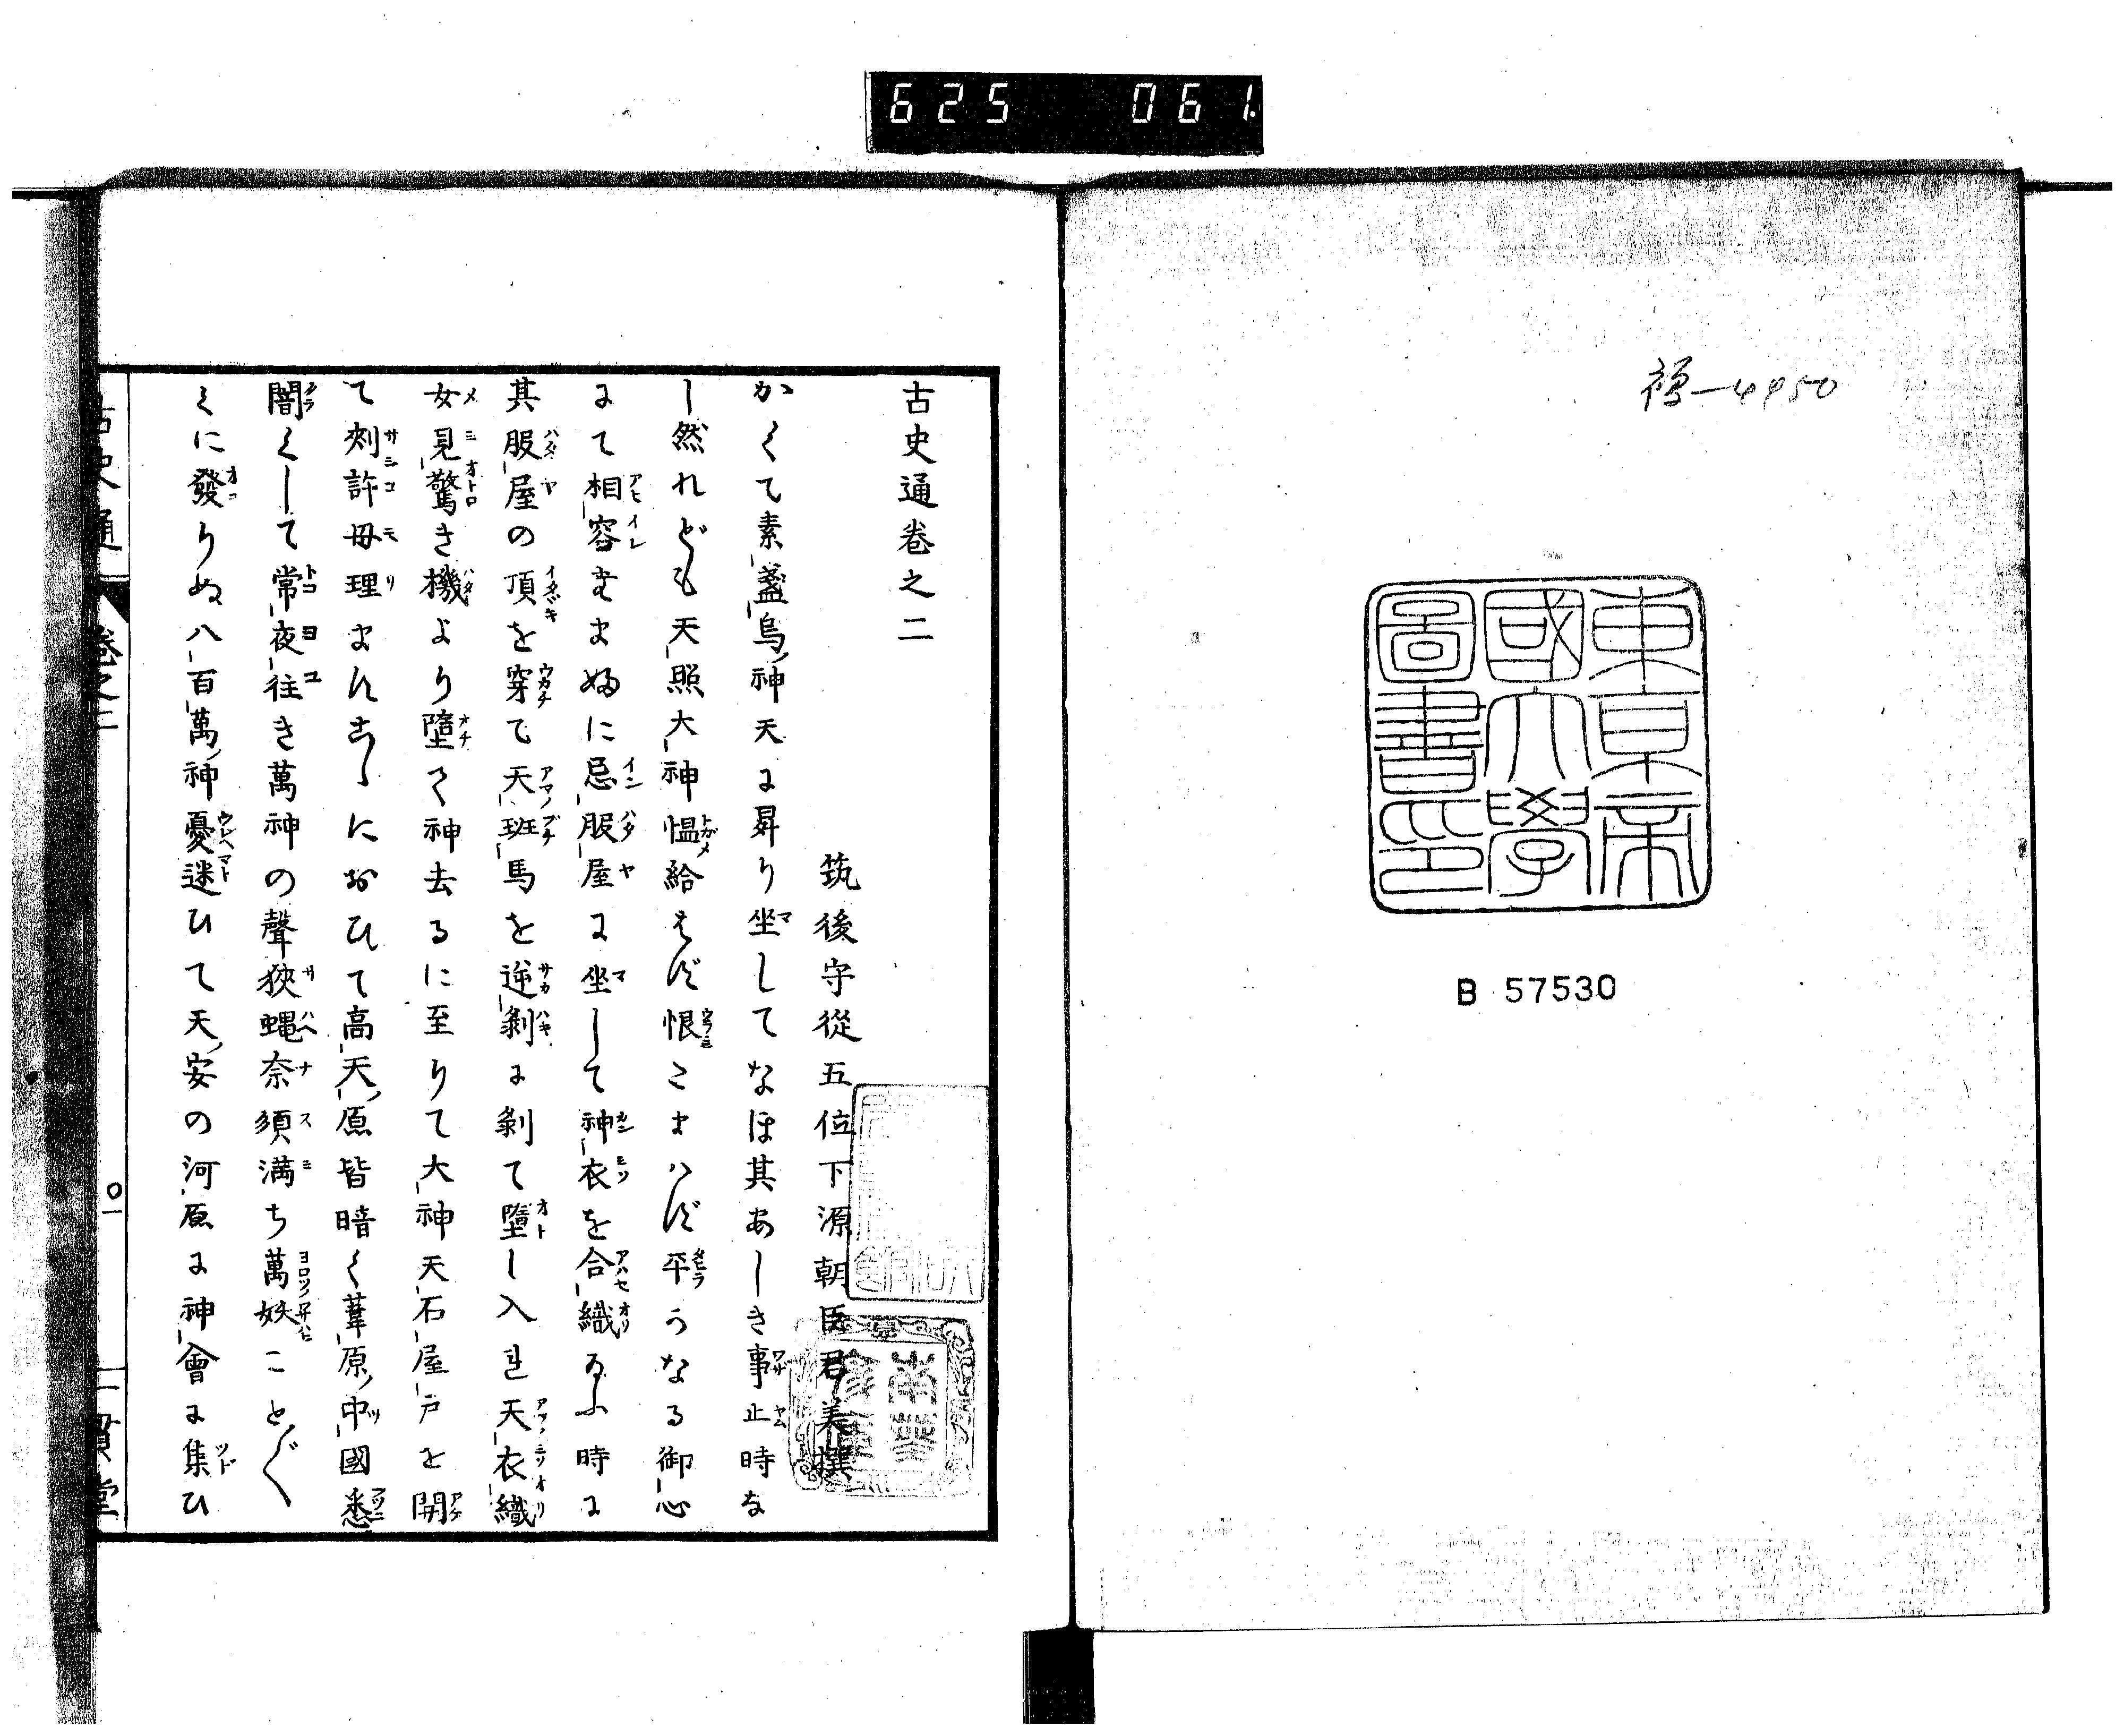 625 061
禪-4950
東京帝
國大學
圖書印
B 57530
古史通卷之二
筑後守從五位下源朝臣君美撰
かくて素盞烏神天に昇り坐してなほ其あしき事止時な
し然れども天照大神慍給はず恨こまハず平うなる御心
にて相容たまぬに忌服屋に坐して神衣を合織るふ時に
其服屋の頂を穿て天班馬を逆剝に剝て墮し入れ天衣織
女見驚き機より墮て神去るに至りて大神天石屋戸を開
て刾許母理ましましにおひて高天原皆暗く葦原中國悉
闇くして常夜往き萬神の聲狹蠅奈須満ち萬妖ことごと
くに發りぬ八百萬神憂迷ひて天安の河原に神會に集ひ
古史通
卷之二